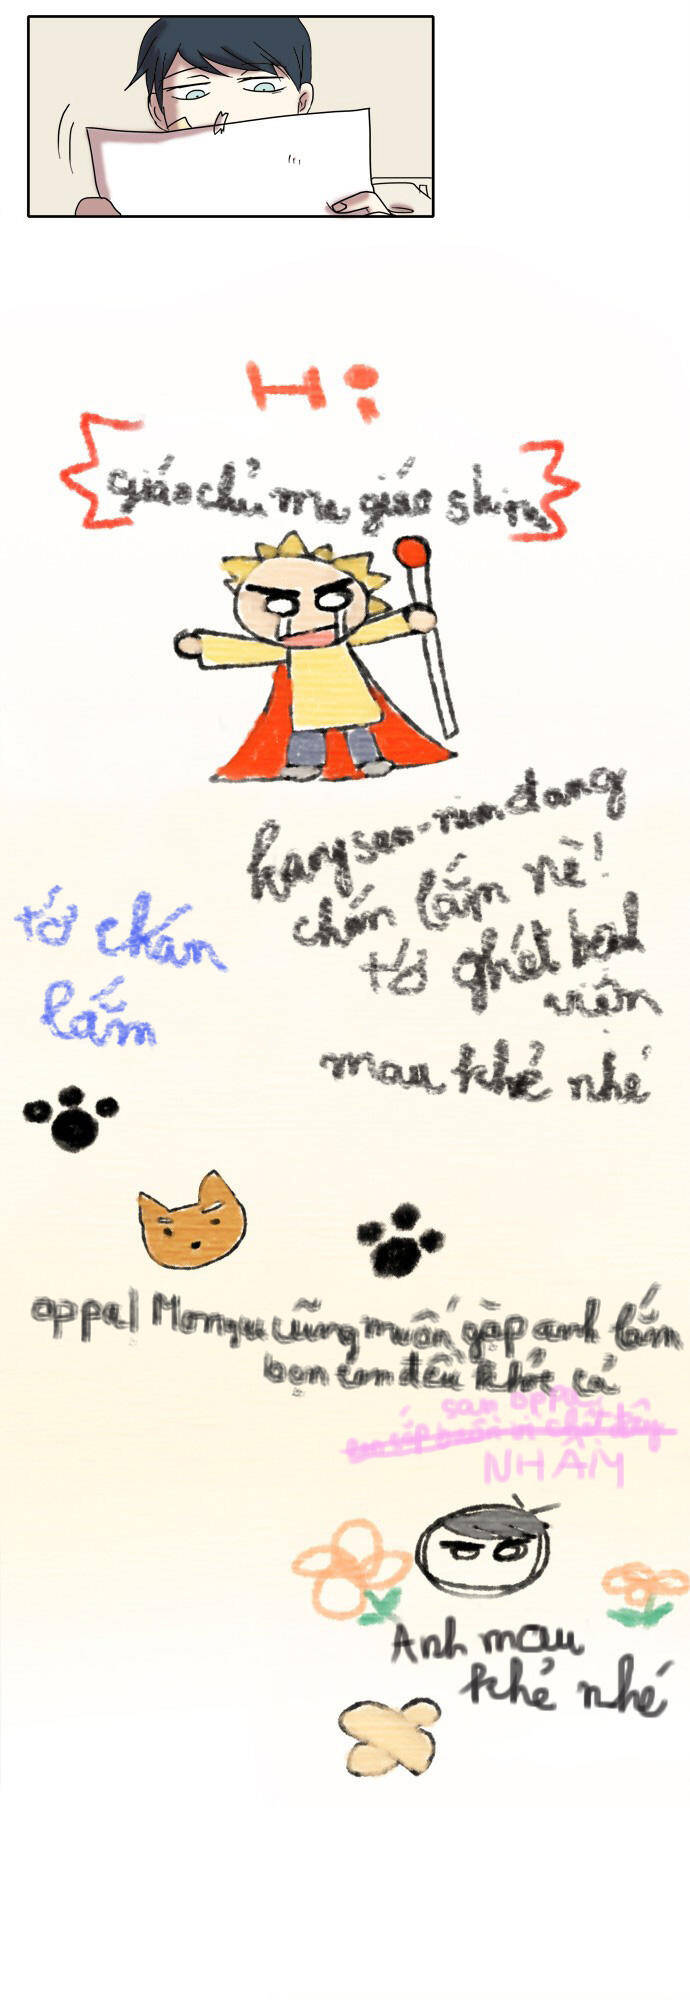 Hi
giáo chủ ma giáo shinu
kangsan-nim đang
chán lắm nè!
tớ ghét bệnh
viện
mau khẻ nhé
tớ chán
lắm
oppa! Mongu cũng muốn gặp anh lắm
bọn em đều khóc cả
san oppa
NHẦM
Anh mau
khẻ nhé